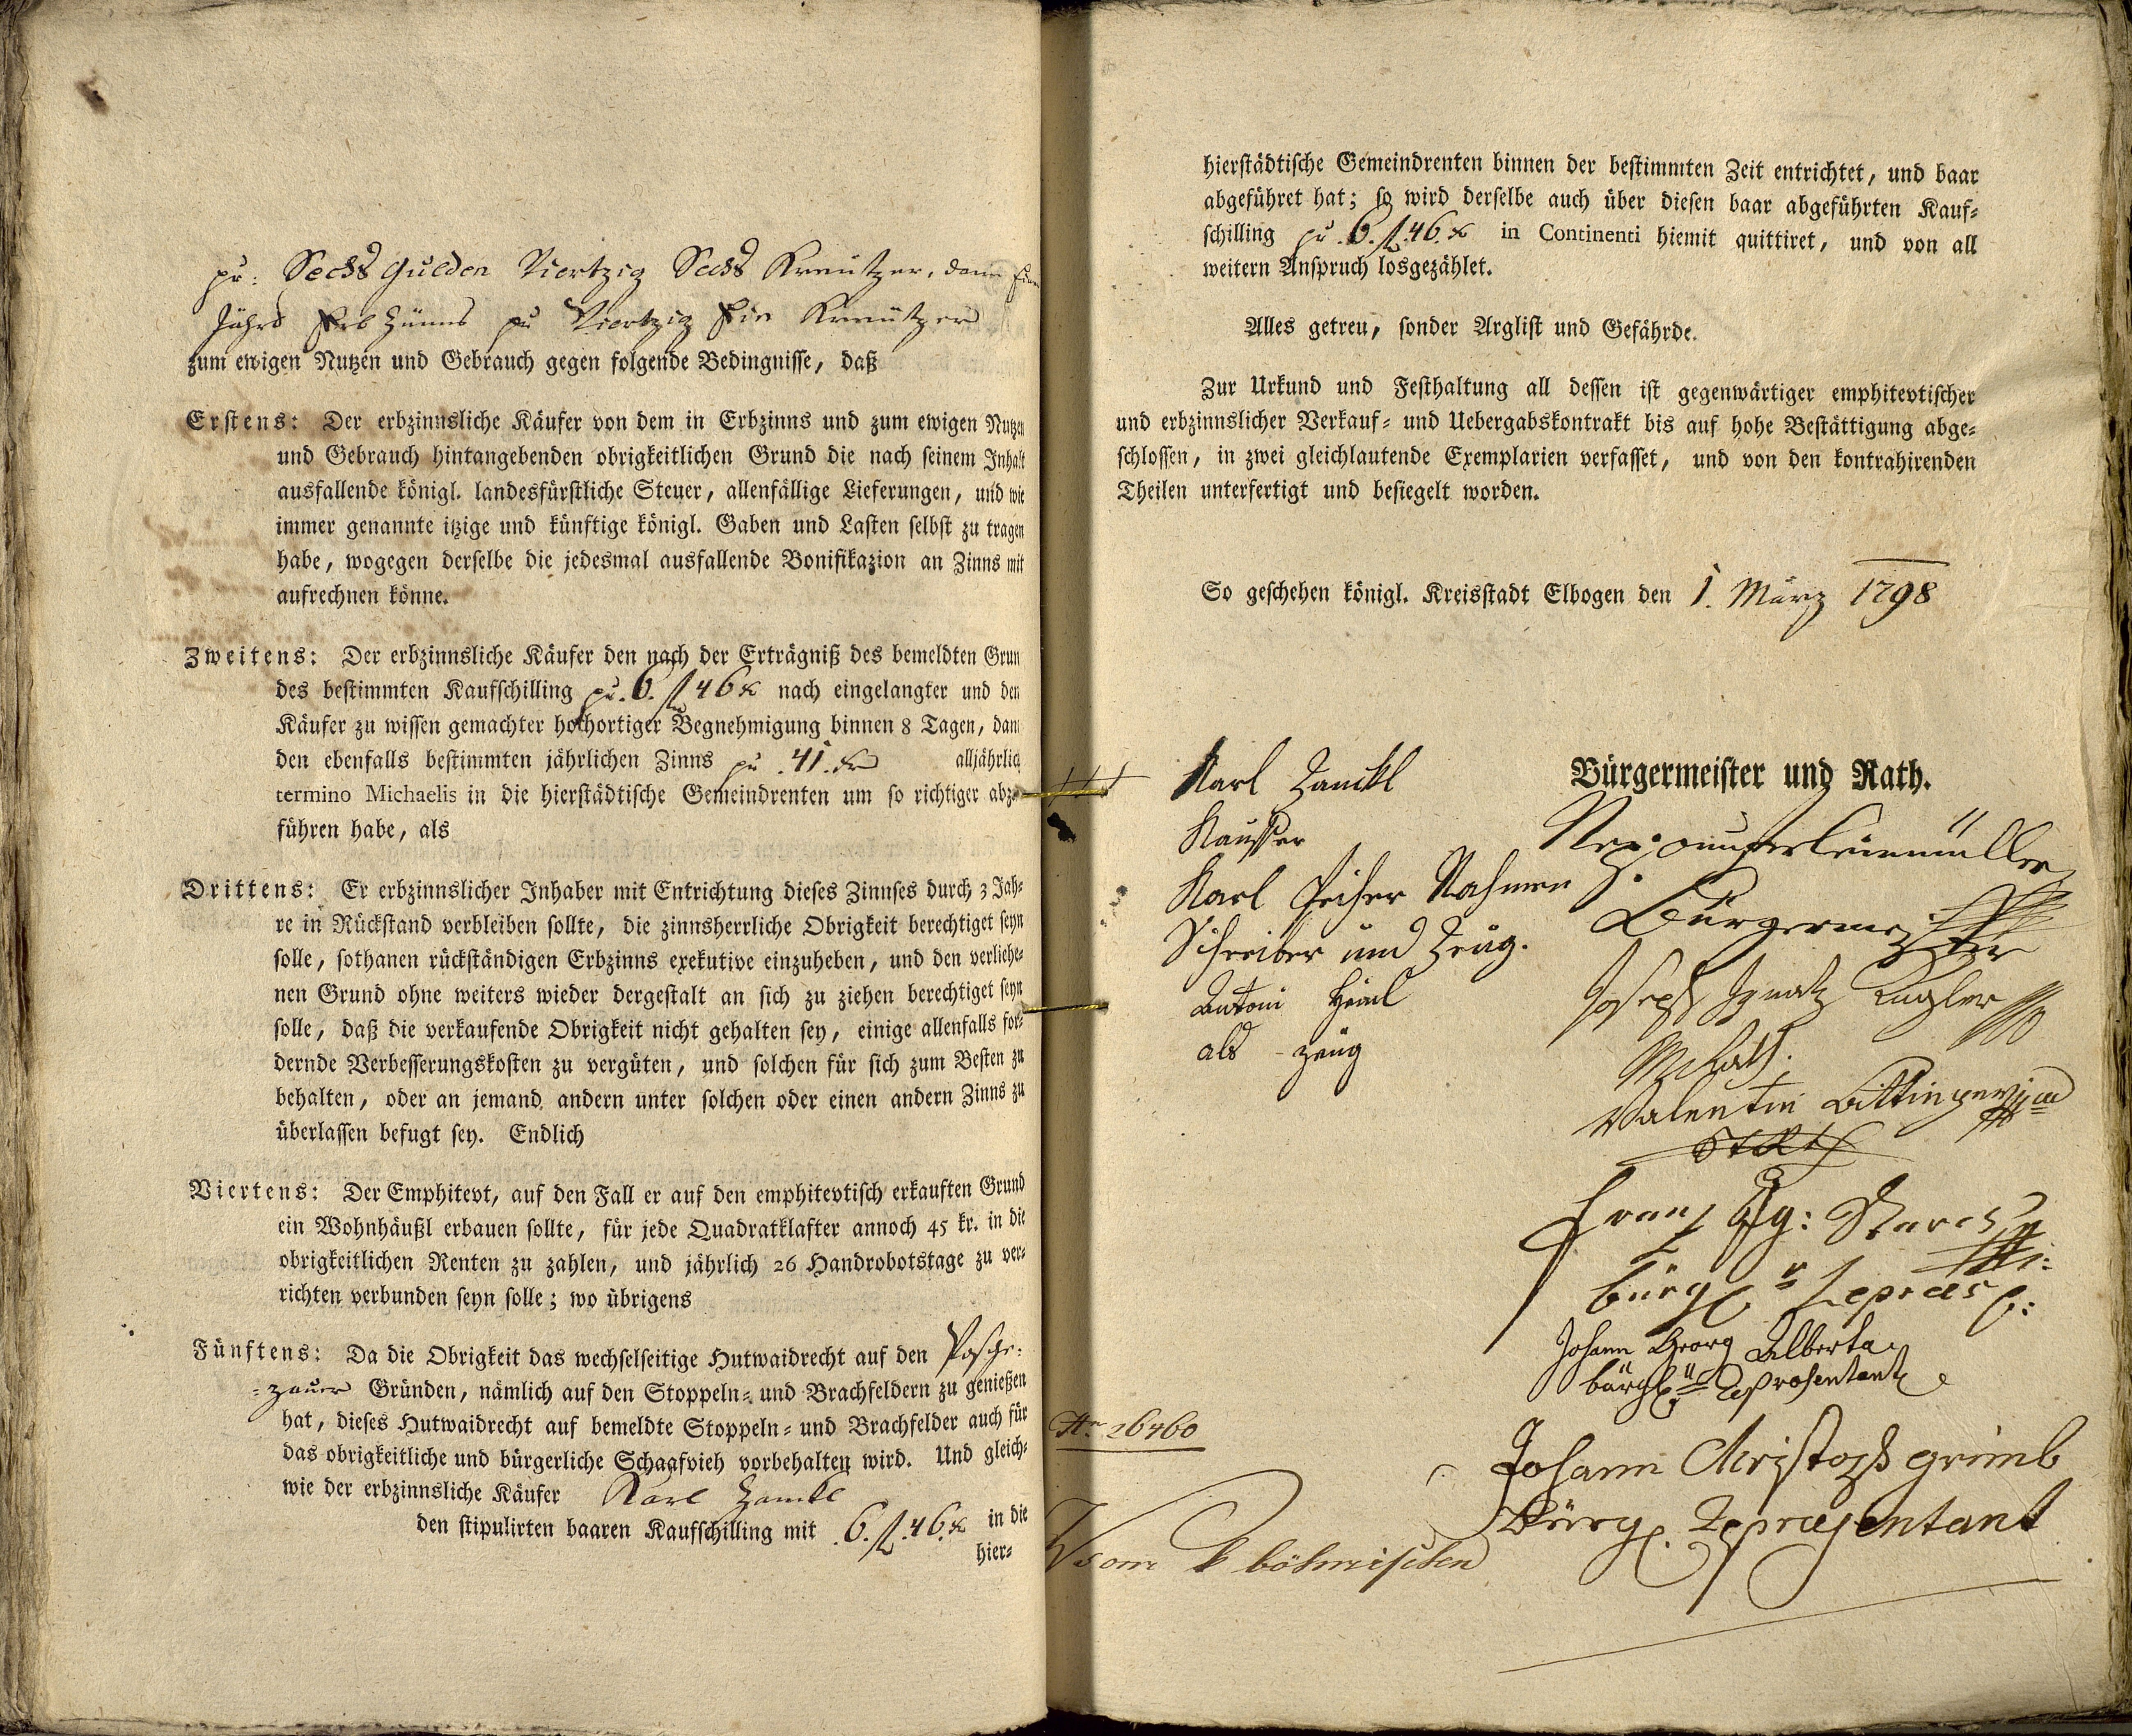 pr: Sechs Gulden Viertzig Sechs Kreutzer, dann
Jährl Erb Zünns pr Viertzig Ein Kreutzer
zum ewigen Nutzen und Gebrauch gegen folgende Bedingnisse, daß
Erstens: Der erbzinnsliche Käufer von dem in Erbzinns und zum ewigen Nutzen
und Gebrauch hintangebenden obrigkeitlichen Grund die nach seinem Inhalt
ausfallende königl. landesfürstliche Steuer, allenfällige Lieferungen, und wie
immer genannte itzige und künftige königl. Gaben und Lasten selbst zu tragen
habe, wogegen derselbe die jedesmal ausfallende Bonifikazion an Zinns mit
aufrechnen könne.
Zweitens: Der erbzinnsliche Käufer den nach der Erträgniß des bemeldten Grun
des bestimmten Kaufschilling pr. 6. fl 46 x nach eingelangter und den
Käufer zu wissen gemachter hochortiger Begnehmigung binnen 8 Tagen, dann
den ebenfalls bestimmten jährlichen Zinns pr 41. kr alljährlich
termino Michaelis in die hierstädtische Gemeindrenten um so richtiger abzu-
führen habe, als
Drittens: Er erbzinnslicher Inhaber mit Entrichtung dieses Zinnses durch 3 Jah-
re in Rückstand verbleiben sollte, die zinnsherrliche Obrigkeit berechtiget seyn
solle, sothanen rückständigen Erbzinns exekutive einzuheben, und den verliehe-
nen Grund ohne weiters wieder dergestalt an sich zu ziehen berechtiget seyn
solle, daß die verkaufende Obrigkeit nicht gehalten sey, einige allenfalls for-
dernde Verbesserungskosten zu vergüten, und solchen für sich zum Besten zu
behalten, oder an jemand andern unter solchen oder einen andern Zinns zu
überlassen befugt sey. Endlich
Viertens: Der Emphitevt, auf den Fall er auf den emphitevtisch erkauften Grund
ein Wohnhäußl erbauen sollte, für jede Quadratklafter annoch 45 kr. in die
obrigkeitlichen Renten zu zahlen, und jährlich 26 Handrobotstage zu ver-
richten verbunden seyn solle; wo übrigens
Fünftens: Da die Obrigkeit das wechselseitige Hutwaidrecht auf den Posche-
-zauer Gründen, nämlich auf den Stoppeln- und Brachfeldern zu genießen
hat, dieses Hutwaidrecht auf bemeldte Stoppeln- und Brachfelder auch für
das obrigkeitliche und bürgerliche Schaafvieh vorbehalten wird. Und gleich-
wie der erbzinnsliche Käufer Karl Zanckl
den stipulirten baaren Kaufschilling mit 6. fl. 46. x in die
hier-
hierstädtische Gemeindrenten binnen der bestimmten Zeit entrichtet, und baar
abgeführet hat; so wird derselbe auch über diesen baar abgeführten Kauf-
schilling pr. 6. fl. 46. x in Continenti hiemit quittiret, und von all
weitern Anspruch losgezählet.
Alles getreu, sonder Arglist und Gefährde.
Zur Urkund und Festhaltung all dessen ist gegenwärtiger emphitevtischer
und erbzinnslicher Verkauf- und Uebergabskontrakt bis auf hohe Bestättigung abge-
schlossen, in zwei gleichlautende Exemplarien verfasset, und von den kontrahirenden
Theilen unterfertigt und besiegelt worden.
So geschehen königl. Kreisstadt Elbogen den 1. März 1798
+++ Karl Zanckl
Kauffer
Karl Nahmen
Schreiber und Zeug.
Antoni Heinl
als Zeug
Bürgermeister und Rath.
Bürgermeister
Joseph Ignatz Kugler
Valentin
Franz Starck
bürgl
Johann Georg Alberta
bürgl Representant
Johann Christoph Grimb
Bürgl. Representant
26460
Vom k böhmischen